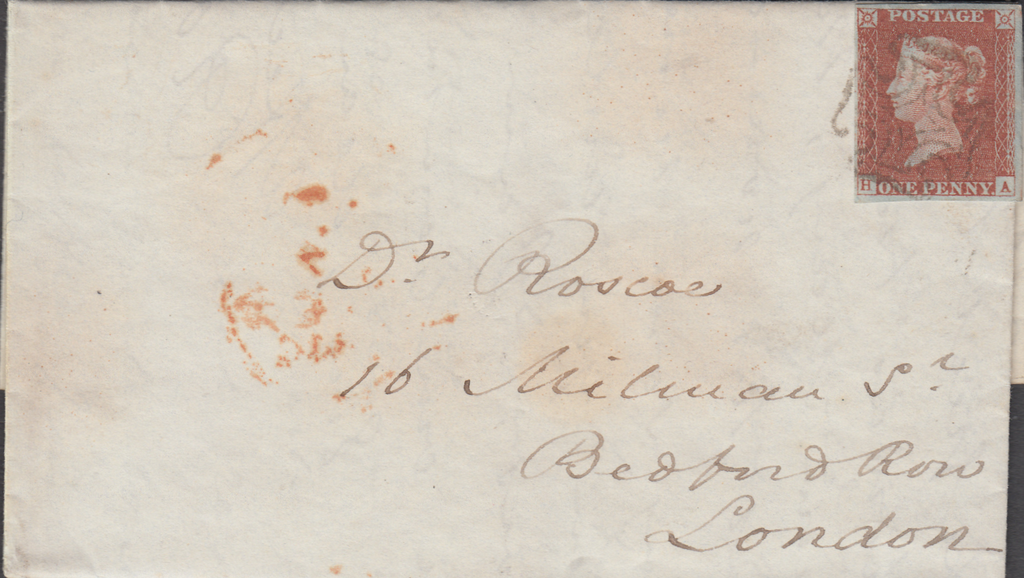 POSTAGE
H ONE PENNY A
Dr Roscoe
16 Milman St
Bedford Row
London